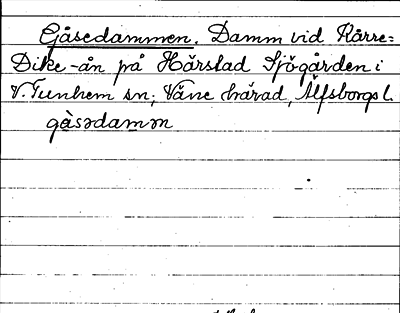 Gåsedammen. Damm vid Kärre=
Dike-ån på Hårstad Sjögården i
V. Tunhem sn; Väne härad, Älfsborgs l.
gå̀sədamən